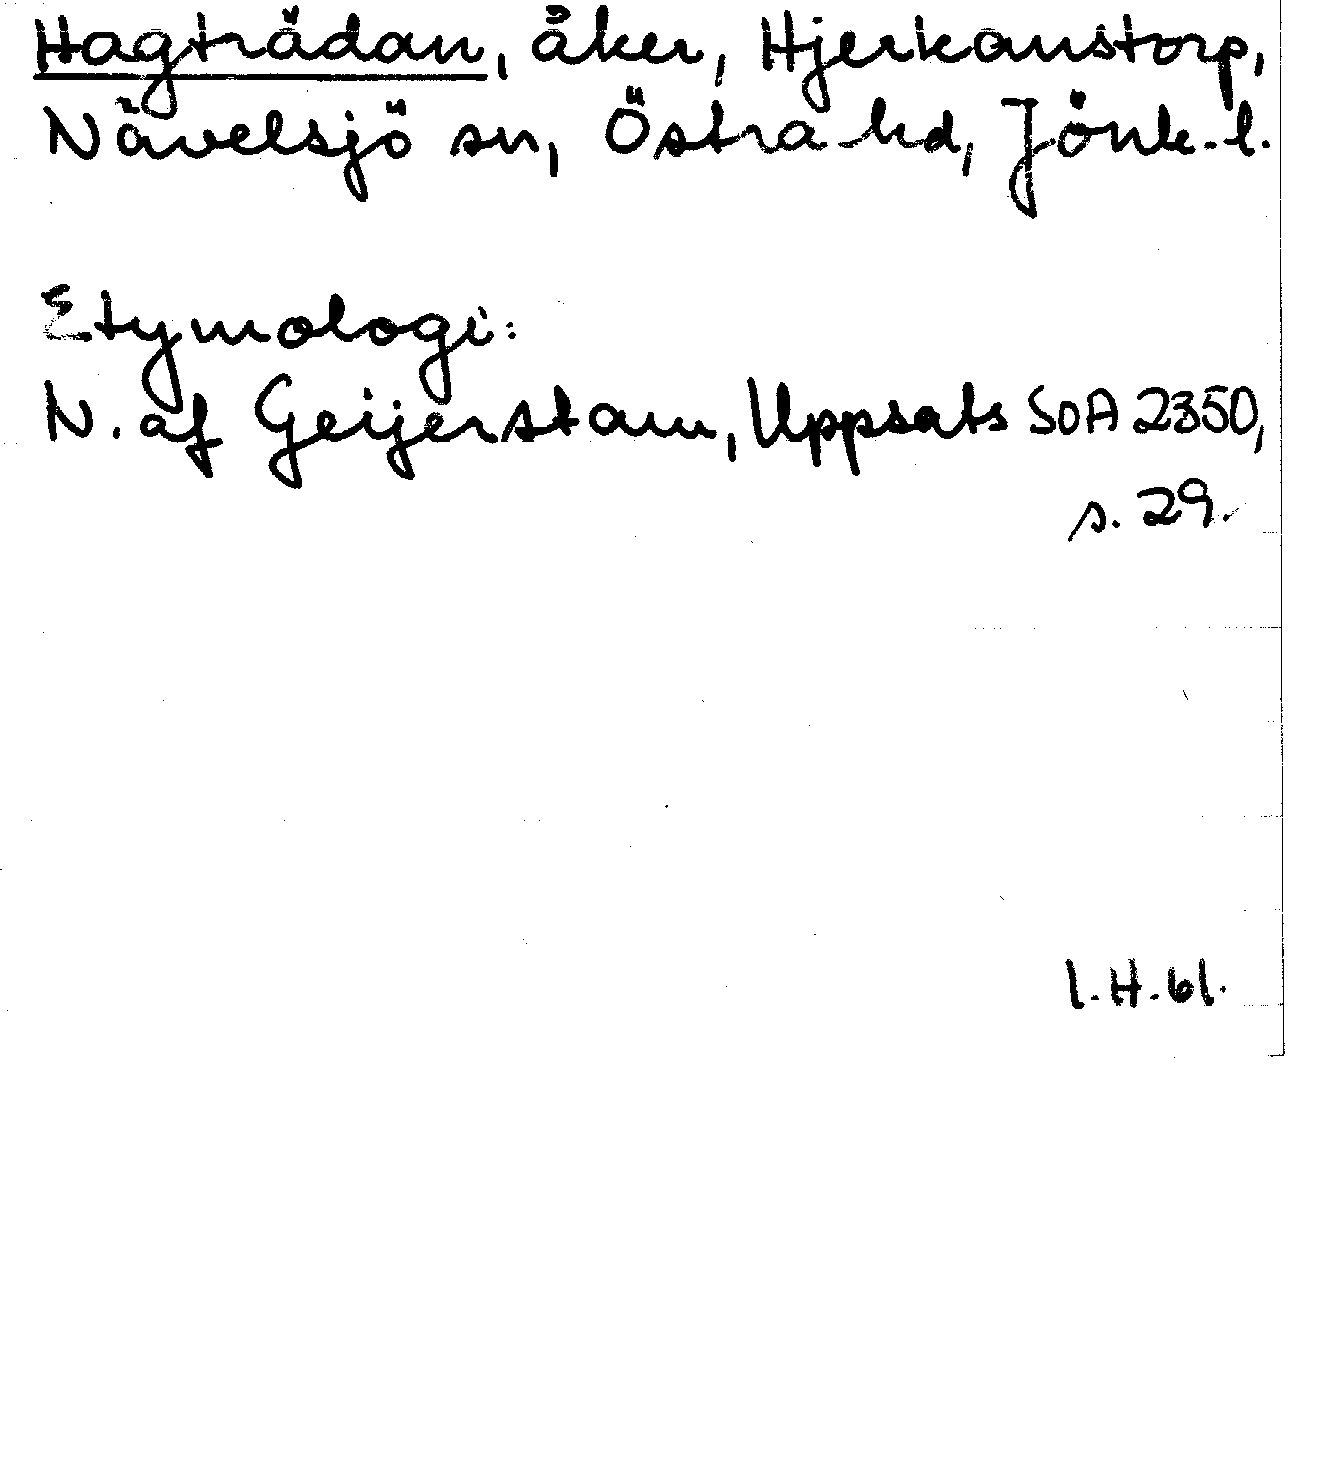 Hagträdan, åker, Hjerkanstorp,
Nävelsjö sn, Östra hd, Jönk. l.
Etymologi:
N. af Geijerstam, Uppsats SOA 2350,
s. 29.
I.H.61.